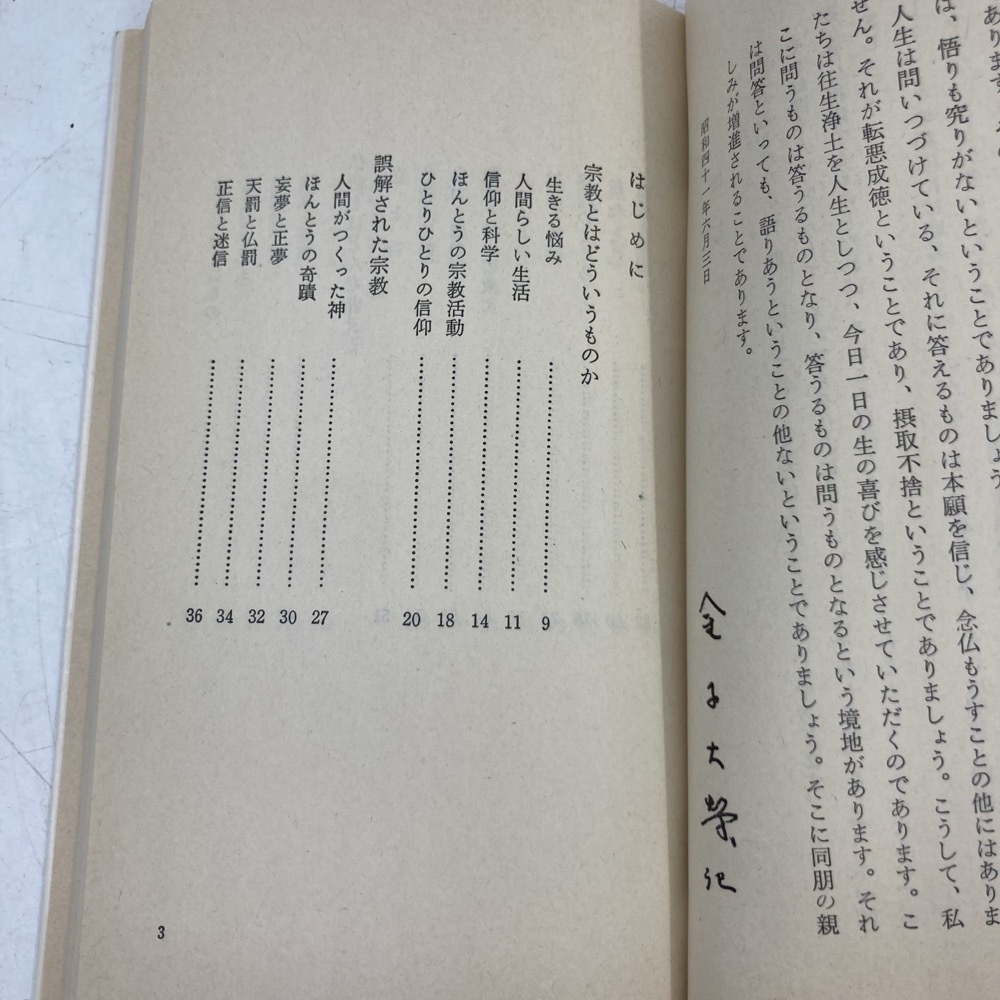 は、悟りも究りがないということでありましょう。
人生は問いつづけている、それに答えるものは本願を信じ、念仏もうすことの他にはありま
せん。それが転悪成徳ということであり、摂取不捨ということでありましょう。こうして、私
たちは往生浄土を人生としつつ、今日一日の生の喜びを感じさせていただくのであります。こ
こに問うものは答うるものとなり、答うるものは問うものとなるという境地があります。それ
は問答といっても、語りあうということの他ないということでありましょう。そこに同朋の親
しみが増進されることであります。
昭和四十一年六月三日
金子大榮記
はじめに
宗教とはどういうものか
生きる悩み……9
人間らしい生活……11
信仰と科学……14
ほんとうの宗教活動……18
ひとりひとりの信仰……20
誤解された宗教
人間がつくった神……27
ほんとうの奇蹟……30
妄夢と正夢……32
天罰と仏罰……34
正信と迷信……36
3